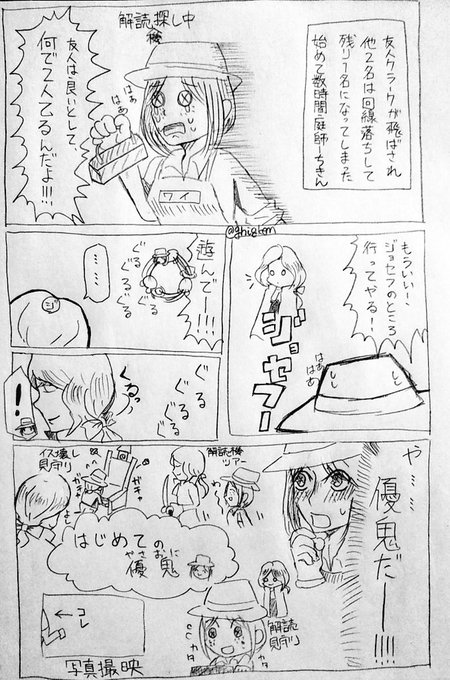 友人クラークが飛ばされ
他2名は回線落ちして
残り1名になってしまった
始めて数時間庭師ーちきん
解読機探し中
はぁ
はぁ
ワイ
友人は良いとして、
何で2人てるんだよ!!!
@ghistom
もういい!
ジョセフのところ
行ってやる!
はぁ
はぁ
ジョセフー
遊んでー!!!
ぐる
ぐる
ぐる
ぐる
……
ジ
ぐる
ぐる
ぐる
くるっ
!
や……
優鬼だー!!!!
解読機
ツアー
イス壊し
見守り
ガチャ
ガチャ
はじめての
優鬼
やさ おに
解読
見守り
カタ
カタ
コレ
写真撮映